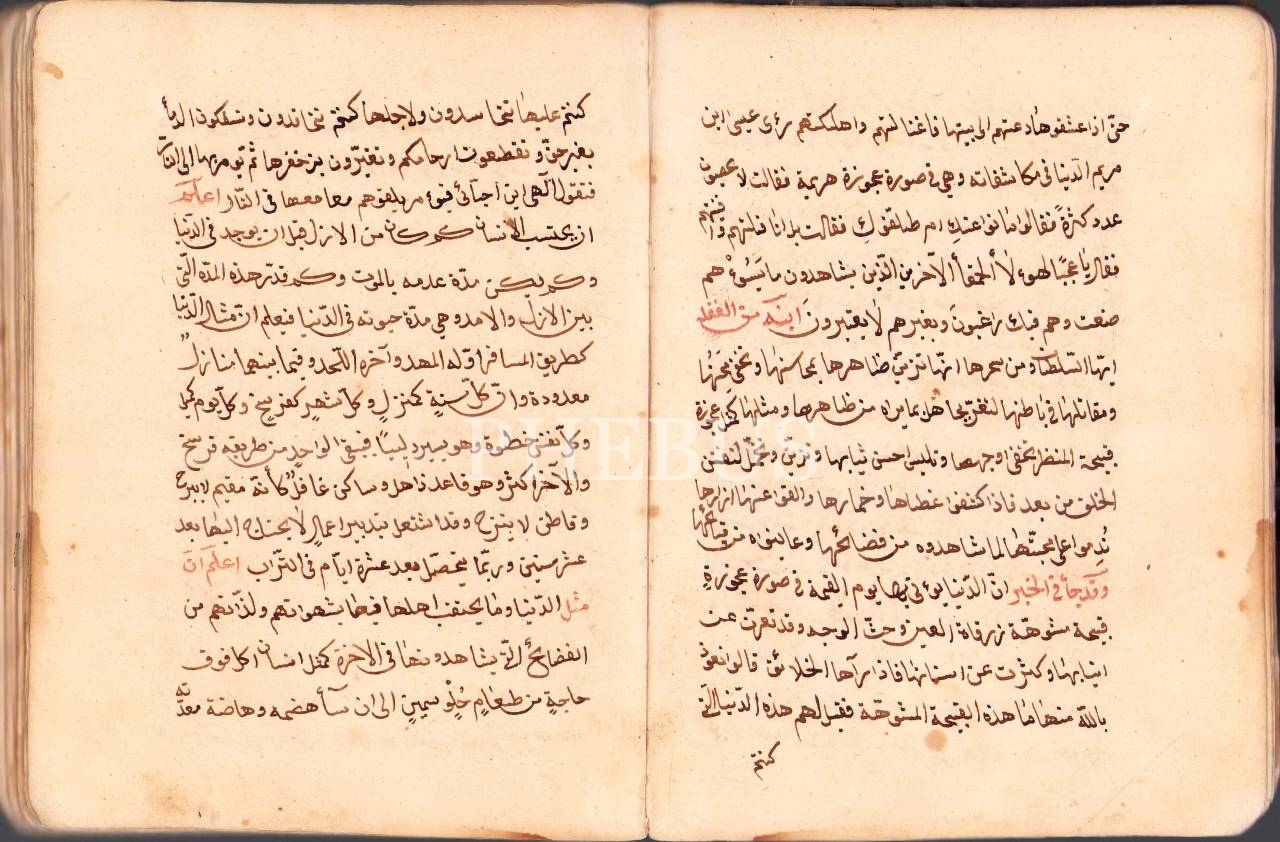 حتى اذا عشقوها دعتهم الى بيتها فاغتالتهم واهلكتهم رأى عيسى ابن
مريم الدنيا في مكاشفاته وهي في صورة عجوزة هريمة فقالت لا يحصون
عدد كثرة فقال ماتوا عنك ام طلقوك فقالت بل انا قتلتهم وافنيتهم
فقال يا عجبًا لهؤلاء الحمقأ الآخرين الذين يشاهدون ما بسواهم
صنعت وهم فيك راغبون وبغيرهم لا يعتبرون انتبه من الغفلة
ايها السلطان ومن سحرها انها تزين ظاهرها بمحاسنها وتخفي محنها
ومقاتلها في باطنها لتغر الجاهل بما يراه من ظاهرها ومثلها كمثل عجوزة
قبيحة المنظر تخفى وجهها وتلبس احسن ثيابها وتزين وتجمل لتفتن
الخلق من بعد فاذا كشفوا غطاها وخمارها والقوا عنها ازارها
ندموا على محبتها لما شاهدوه من فضائحها وعاينوه من قبايحها
وقد جأ في الخبر ان الدنيا يؤتى بها يوم القيمة في صورة عجوزة
قبيحة مشوهة زرقاة العين وحش الوجه وقد تعرت عن
انيابها وكشرت عن اسنانها فاذا رآها الخلائق قالوا نعوذ
بالله منها ما هذه القبيحة المشوهة فيقل لهم هذه الدنيا التي
كنتم
كنتم عليها تتحاسدون ولاجلها كنتم تتحاقدون وتسفكون الدمأ
بغير حق وتقطعون ارحامكم وتغترون بزخرفها ثم يؤمر بها الى النار
فتقول الهي اين احبائي فيؤمر بهم يلقوهم معا معها في النار اعلم
ان يحتسب الانسان كم كان من الازل قبل ان يوجد في الدنيا
وكم يكن مدة عدمه بالموت وكم قدر هذه المدة التي
بين الازل والامد وهي مدة حيوته في الدنيا فيعلم ان مثال الدنيا
كطريق المسافر اوله المهد وآخره اللحد وفيما بينهما منازل
معدودة وان كل سنة كمنزل وكل شهر كفرسخ وكل يوم كميل
وكل نفس خطوة وهو يسير دايبًا فيبقى لواحد من طريقه فرسخ
والآخر اكثر وهو قاعد ذاهل وساكن غافل كأنه مقيم لا يبرح
وقاطن لا ينزح وقد اشتغل بتدبير اعمال لا يحتاج اليها بعد
عشر سنين وربما يحصل بعد عشرة ايام في التراب اعلم ان
مثل الدنيا وما يحتقب اهلها فيها بشهواتهم ولذاتهم من
الفضائح التي يشاهدونها في الاخرة كمثل انسان اكل فوق
حاجة من طعام حلو سمين الى ان سأ هضمه وهاضة معدته